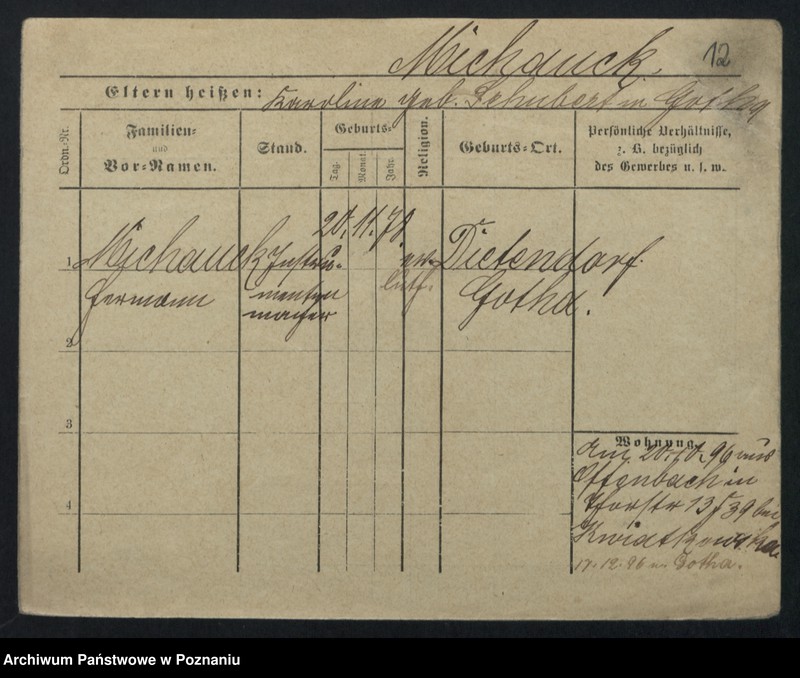 Michauck 12
Eltern heißen: Karoline geb. Schubert in Gotha
Ordn.-Nr.
Familien-
und
Vor-Namen.
Stand.
Geburts-
Tag.
Monat.
Jahr.
Religion.
Geburts-Ort.
Persönliche Verhältnisse,
z. B. bezüglich
des Gewerbes u. s. w.
20. 11. 78.
1 Michauck Instru- ev. Dietendorf
luth. Gotha.
Hermann
menten
macher
2
3
Wohnung
Am 20.10.96 aus
Offenbach in
13 39 bei
Kwiatkowska
4
17.12.96 n. Gotha.